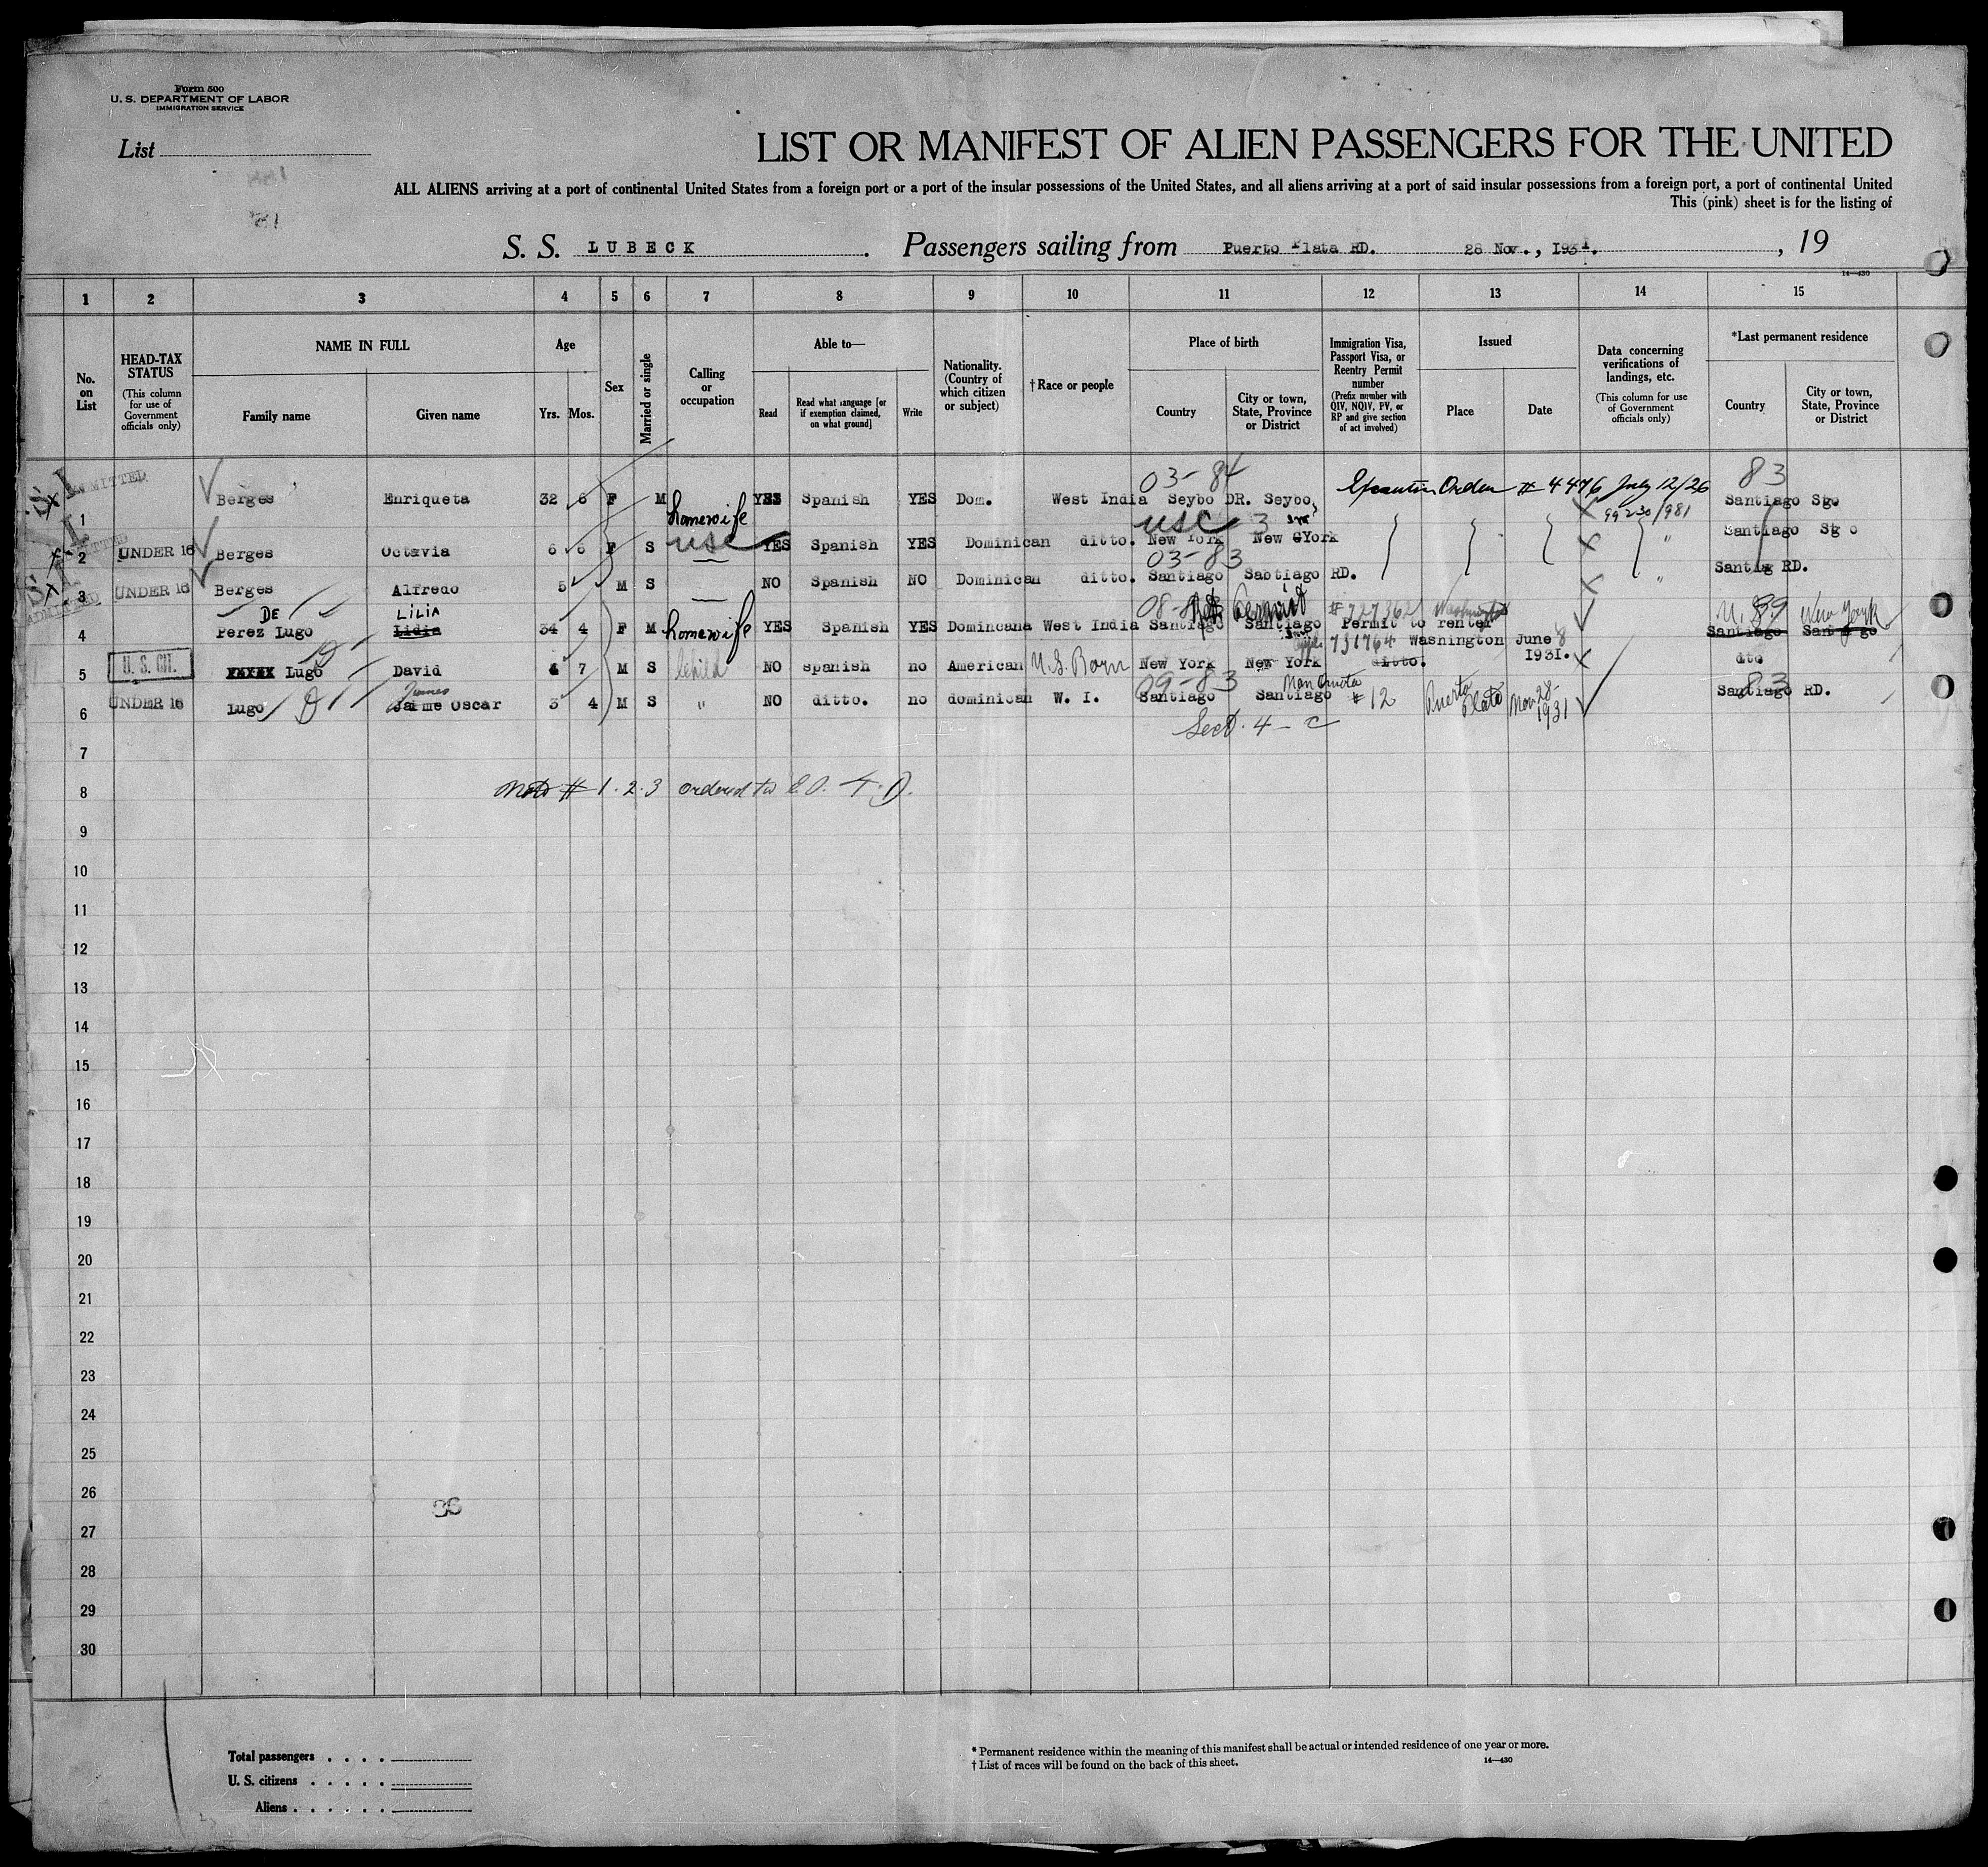 Form 500
U. S. DEPARTMENT OF LABOR
IMMIGRATION SERVICE
List
LIST OR MANIFEST OF ALIEN PASSENGERS FOR THE UNITED
ALL ALIENS arriving at a port of continental United States from a foreign port or a port of the insular possessions of the United States, and all aliens arriving at a port of said insular possessions from a foreign port, a port of continental United
This (pink) sheet is for the listing of
S. S. LUBECK. Passengers sailing from Puerto Plata RD. 28 Nov., I931., 19
14—430
1 2 3 4 5 6 7 8 9 10 11 12 13 14 15
No. on List
HEAD-TAX STATUS (This column for use of Government officials only)
NAME IN FULL Family name Given name
Age Yrs. Mos.
Sex
Married or single
Calling or occupation
Able to— Read Read what language [or if exemption claimed, on what ground] Write
Nationality. (Country of which citizen or subject)
†Race or people
Place of birth Country City or town, State, Province or District
Immigration Visa, Passport Visa, or Reentry Permit number (Prefix number with QIV, NQIV, PV, or RP and give section of act involved)
Issued Place Date
Data concerning verifications of landings, etc. (This column for use of Government officials only)
*Last permanent residence Country City or town, State, Province or District
03-84 83
1 ADMITTED Berges Enriqueta 32 6 F M homewife YES Spanish YES Dom. West India Seybo DR. Seybo, Executive Order # 4476 July 12/26 Santiago Stgo.
usc 3 99230/981
2 UNDER 16 Berges Octavia 6 6 F S usc YES Spanish YES Dominican ditto. New York New GYork " Santiago Stg o
03-83
3 UNDER 16 Berges Alfredo 5 M S — NO Spanish NO Dominican ditto. Santiago Sabtiago RD. " Santiag RD.
DE LILIA
4 Perez Lugo Lidia 34 4 F M homewife YES Spanish YES Domincana West India Santiago Santiago #727362 Permit to renter Washington U.S. New York Santiago Santiago
731764 Washington June 8 I931.
5 U. S. CIT. XXXXX Lugo David 4 7 M S Child NO spanish no American U.S. Born New York New York ditto. dto
09-83
James
6 UNDER 16 Lugo Jaime Oscar 3 4 M S " NO ditto. no dominican W. I. Santiago Santiago Non Quota #12 Puerto Plata Nov. 28-1931 83 Santiago RD.
Sect. 4-c
7
8 Note # 1.2.3 ordered to
9
10
11
12
13
14
15
16
17
18
19
20
21
22
23
24
25
26
27
28
29
30
36
Total passengers . . . .
U. S. citizens . . . . .
Aliens . . . . . .
* Permanent residence within the meaning of this manifest shall be actual or intended residence of one year or more.
† List of races will be found on the back of this sheet.
14—430